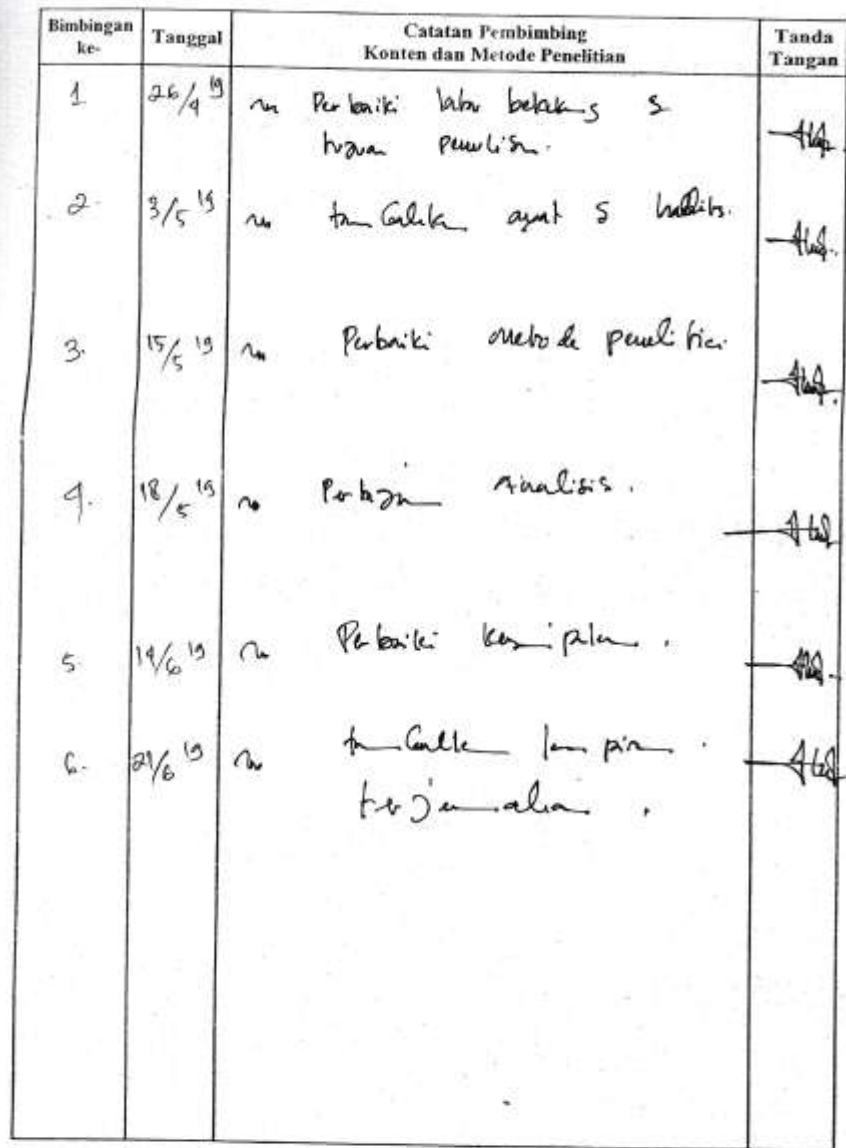 Bimbingan ke- Tanggal Catatan Pembimbing Konten dan Metode Penelitian Tanda Tangan
1 26/4 19 Perbaiki latar belakang &
tujuan penulisan.
2. 3/5 19 tambahkan ayat & hadits.
3. 15/5 19 Perbaiki metode penelitian
4. 18/5 19 Pertajam Analisis.
5. 14/6 19 Perbaiki kesimpulan.
6. 21/6 19 tambahkan lampiran.
terjemahan.